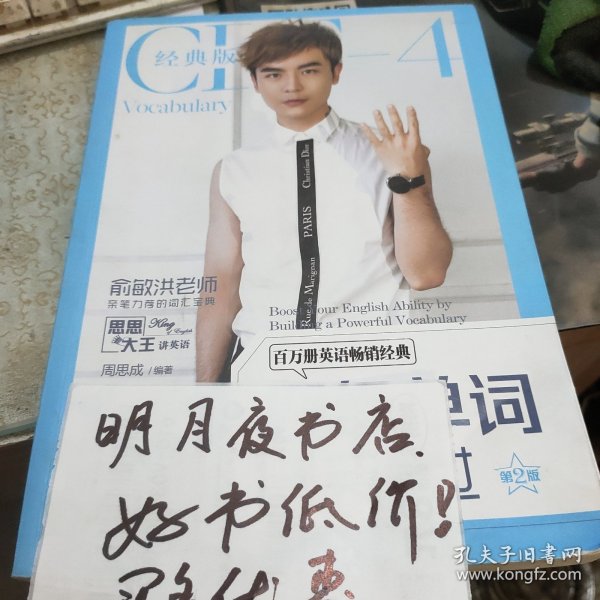 经典版
4
Vocabulary
Christian Dior
PARIS
Rue de Marignan
俞敏洪老师
亲笔力荐的词汇宝典
思思
大王
King
of English
讲英语
周思成 / 编著
Boost Your English Ability by
Building a Powerful Vocabulary
百万册英语畅销经典
单词
过
第2版
明月夜书店
好书低价!
孔夫子旧书网
www.kongfz.com